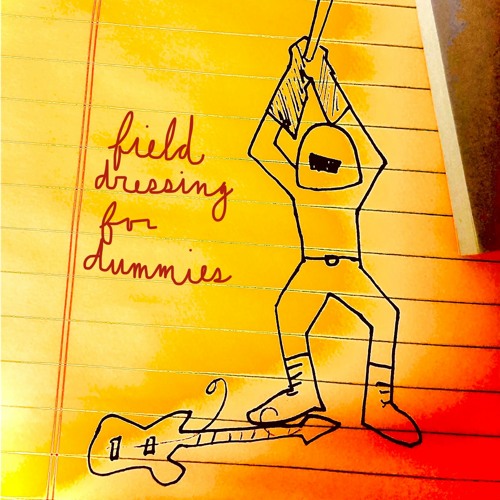 field
dressing
for
dummies